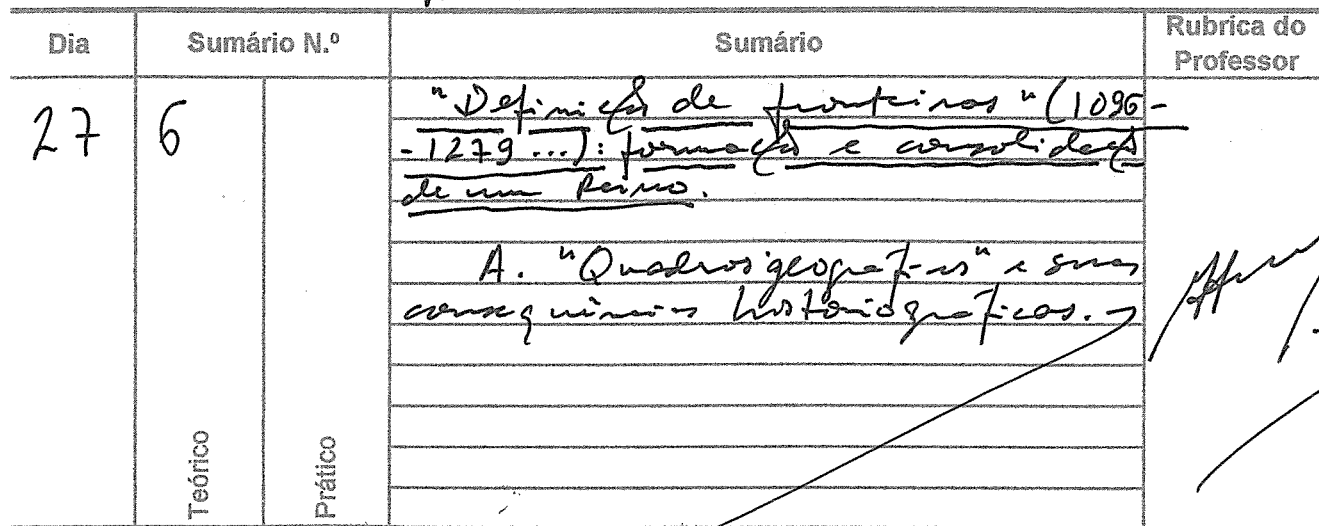 Dia Sumário N.º Sumário Rubrica do Professor
27 6 "Definição de fronteiras" (1096-
-1279...): formação e consolidação
de um Reino.
A. "Quadros geográficos" e suas
consequências historiográficas.
Teórico Prático